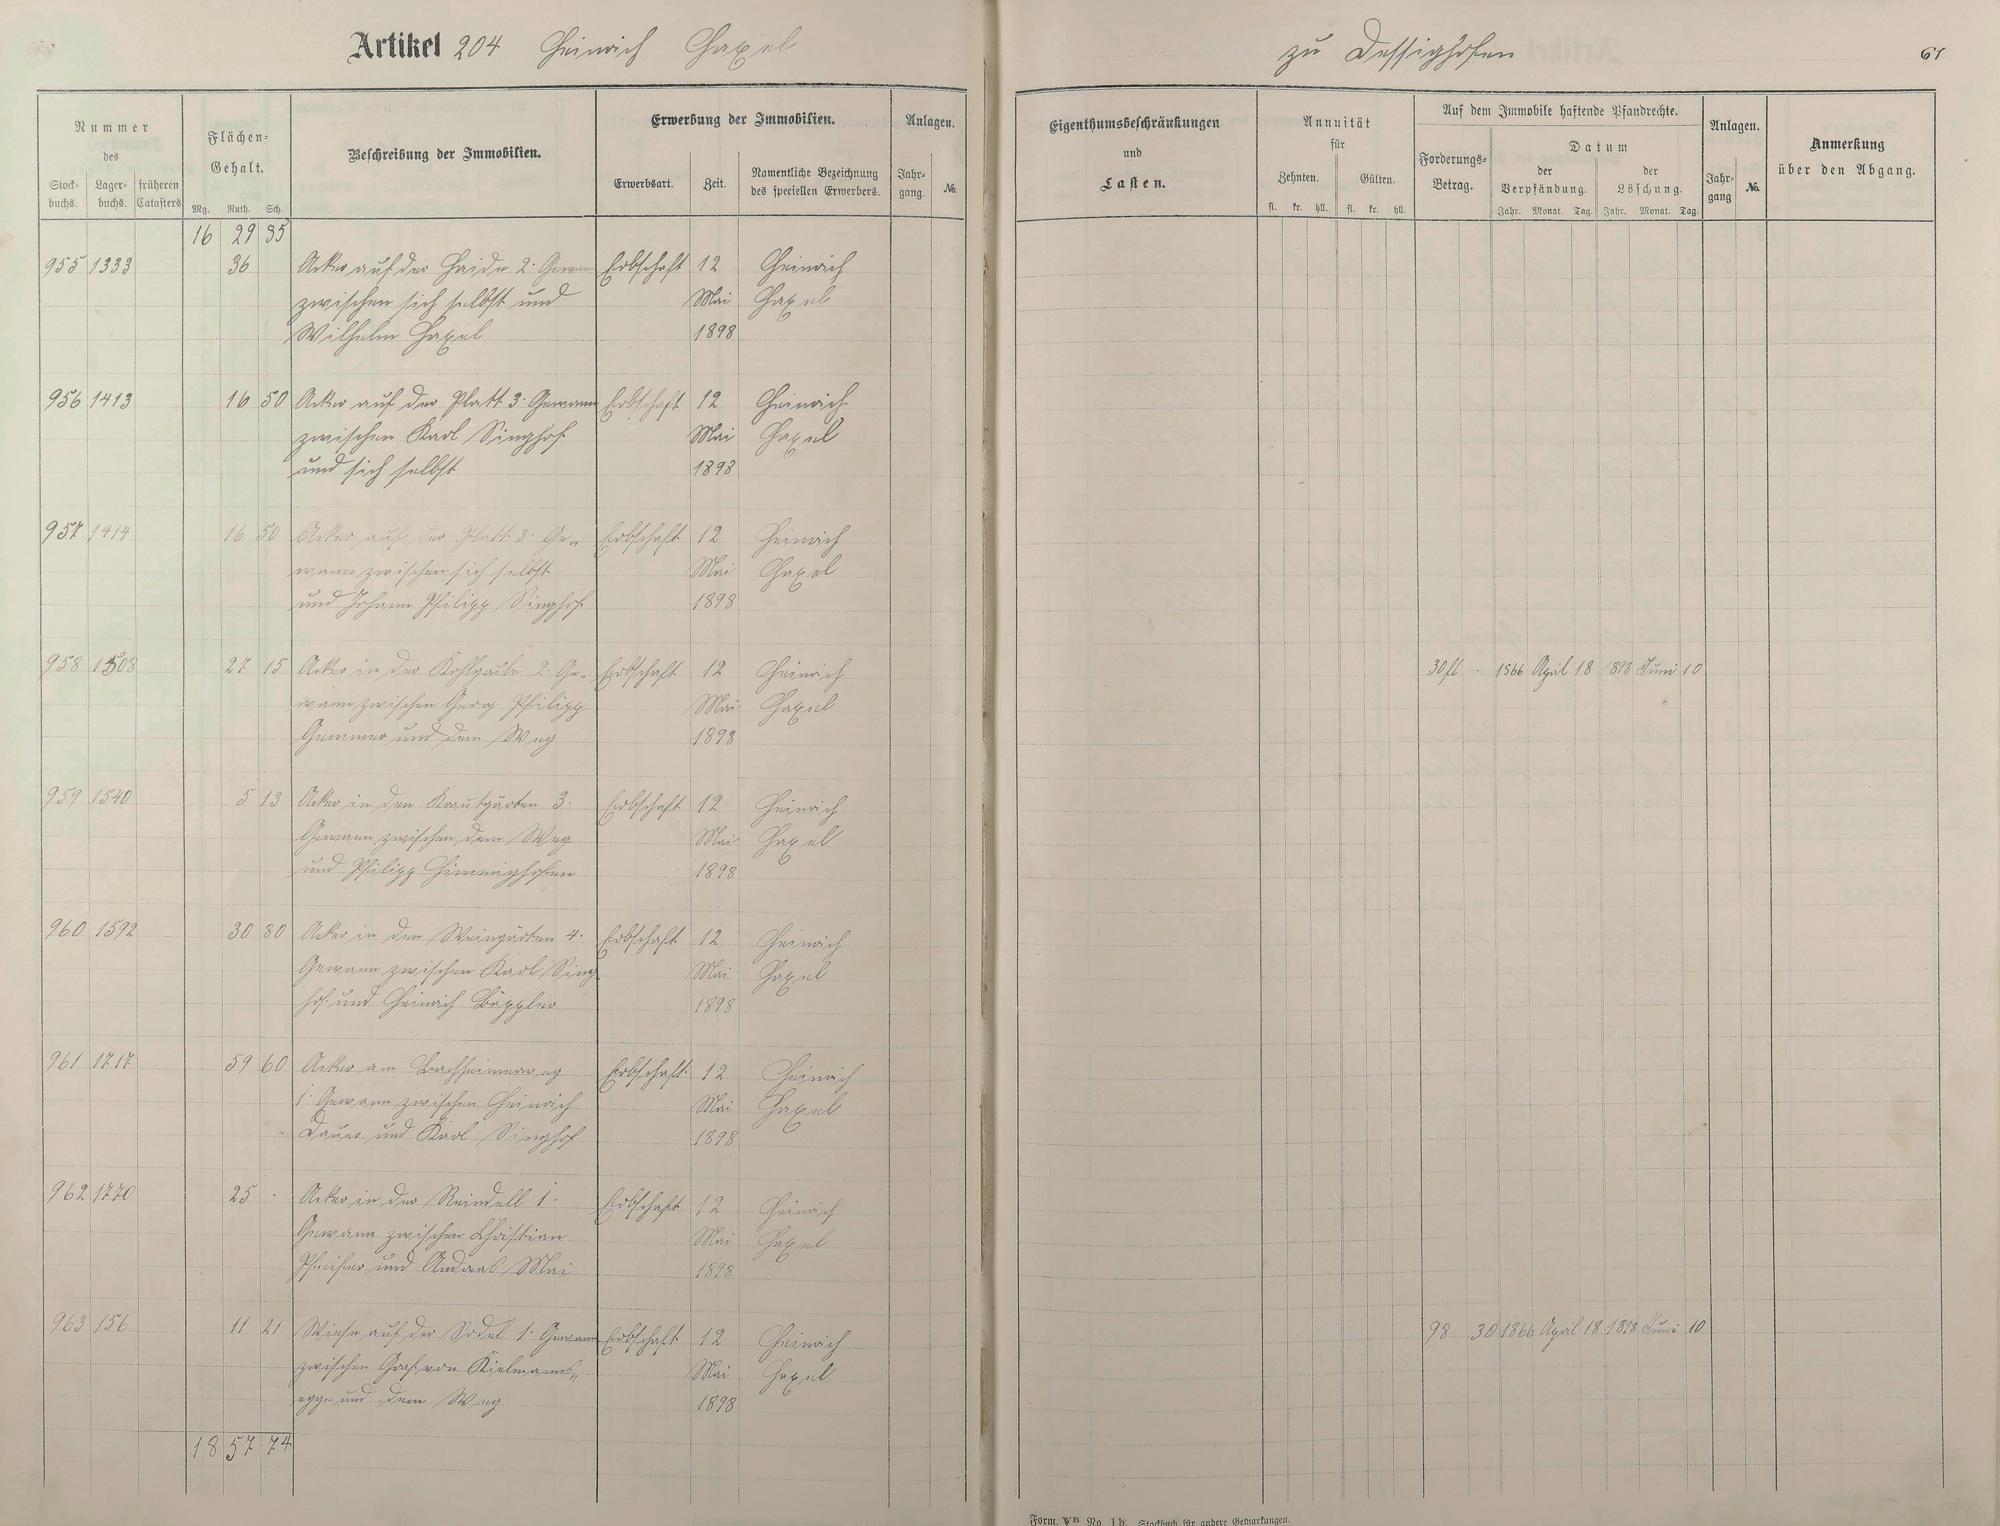 Artikel 204 Heinrich Haxel
zu Dessighofen
61
Nummer
des
Stock-
buchs.
Lager-
buchs.
früheren
Catasters
Flächen-
Gehalt.
Mg. Ruth. Sch.
Beschreibung der Immobilien.
Erwerbung der Immobilien.
Erwerbsart.
Zeit.
Namentliche Bezeichnung
des speciellen Erwerbers.
Anlagen.
Jahr-
gang.
No.
Eigenthumsbeschränkungen
und
Lasten.
Annuität
für
Zehnten.
Gülten.
fl. kr. hll. fl. kr. hll.
Auf dem Immobile haftende Pfandrechte.
Forderungs-
Betrag.
Datum
der
Verpfändung.
der
Löschung.
Jahr. Monat. Tag. Jahr. Monat. Tag.
Anlagen.
Jahr-
gang
No.
Anmerkung
über den Abgang.
16 29 35
955 1333 36 Acker auf der Haide 2. Gewann Erbschaft 12 Heinrich
zwischen sich selbst und Mai Haxel
Wilhelm Haxel 1898
956 1413 16 50 Acker auf der Platt 3. Gewann Erbschaft 12 Heinrich
zwischen Karl Singhof Mai Haxel
und sich selbst 1898
957 1414 16 50 Acker auf der Platt 3. Ge- Erbschaft 12 Heinrich
wann zwischen sich selbst Mai Haxel
und Johann Philipp Singhof 1898
958 1508 27 15 Acker in der Kohlgaube 2. Ge- Erbschaft 12 Heinrich 30 fl - 1866 April 18 1898 Juni 10
wann zwischen Georg Philipp Mai Haxel
Gemmer und dem Weg 1898
959 1540 5 13 Acker in den Krautgärten 3. Erbschaft 12 Heinrich
Gewann zwischen dem Weg Mai Haxel
und Philipp Himmighofen 1898
960 1592 30 80 Acker in den Weingärten 4. Erbschaft 12 Heinrich
Gewann zwischen Karl Sing- Mai Haxel
hof und Heinrich Bäppler 1898
961 1717 59 60 Acker am Bachheimerweg Erbschaft 12 Heinrich
1. Gewann zwischen Heinrich Mai Haxel
Dauer und Karl Singhof 1898
962 1770 25 - Acker in der Reindell 1. Erbschaft 12 Heinrich
Gewann zwischen Christian Mai Haxel
Pfeifer und Andreas Mai 1898
963 156 11 21 Wiese auf der Sodel 1. Gewann Erbschaft 12 Heinrich 98 30 1866 April 18 1898 Juni 10
zwischen Graf von Kielmanns- Mai Haxel
egge und dem Weg 1898
18 57 74
Form. VB No. 1b. Stockbuch für andere Gemarkungen.